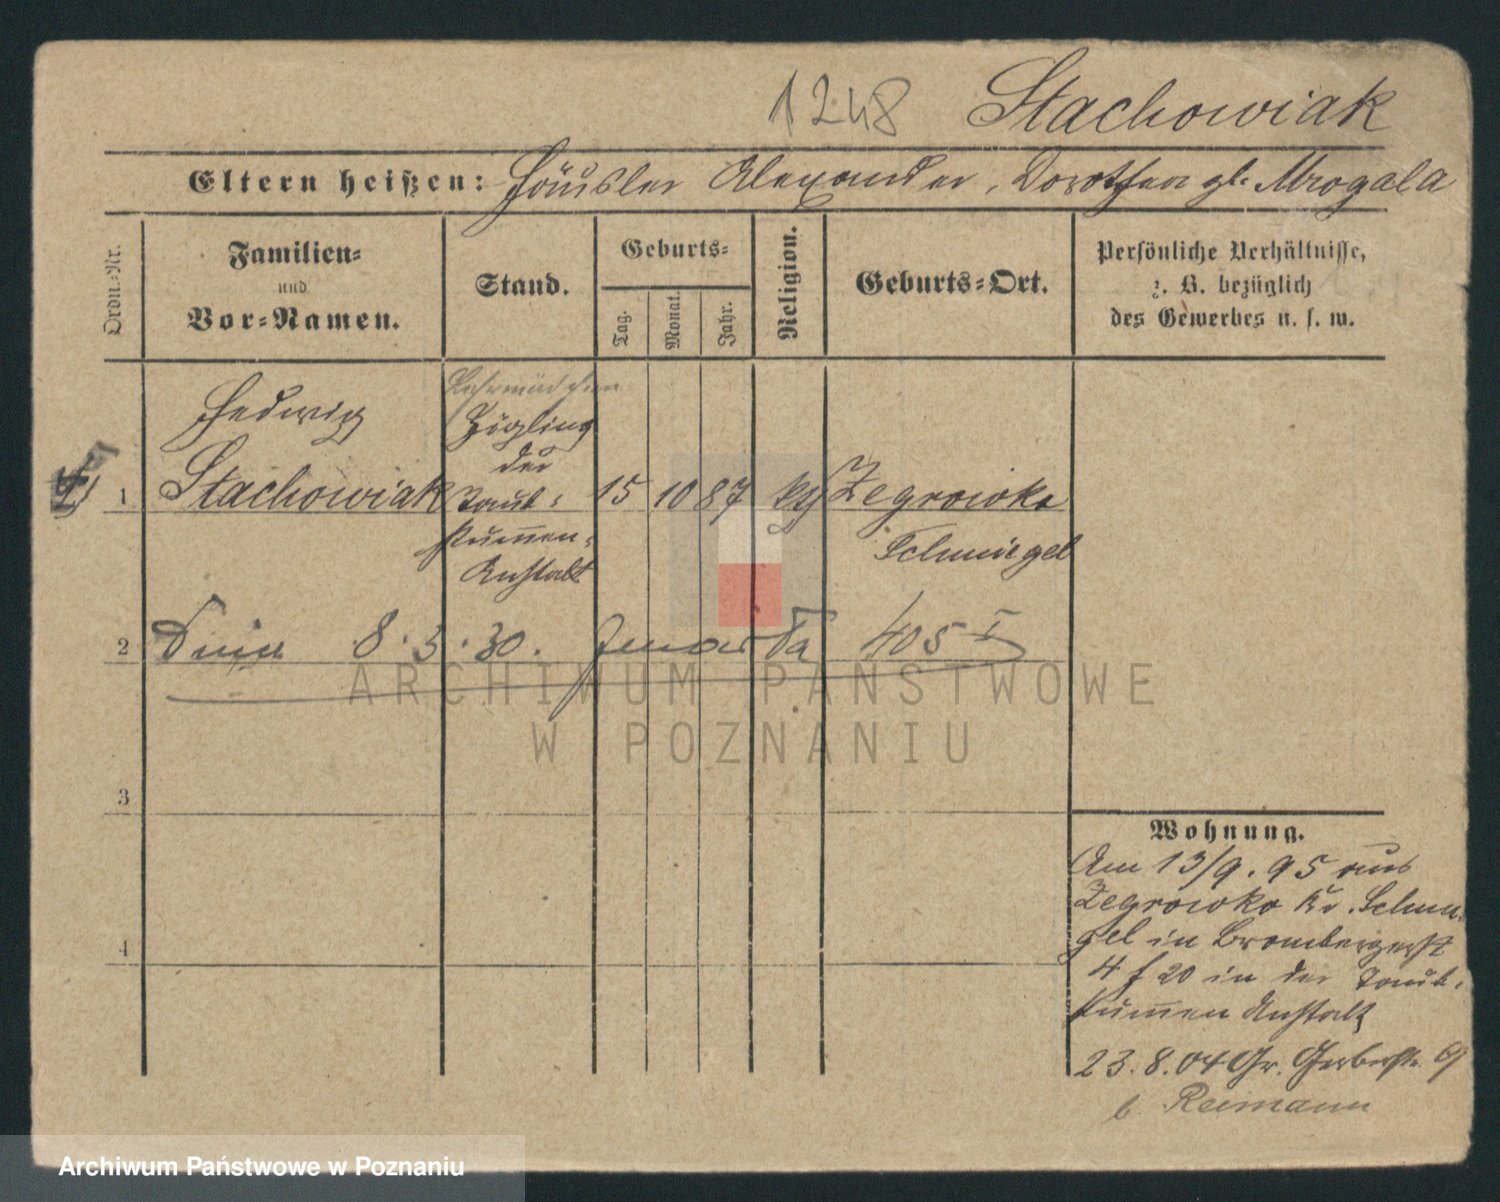 1248 Stachowiak
Eltern heißen: Häusler Alexander, Dorothea gb. Mrogala
Ordn.-Nr.
Familien-
und
Vor-Namen.
Stand.
Geburts-
Tag.
Monat.
Jahr.
Religion.
Geburts-Ort.
Persönliche Verhältnisse,
z. B. bezüglich
des Gewerbes u. s. w.
Lehrmädchen
Hedwig
Zögling
der
1 Stachowiak Taub- 15 10 87 kth Zegrowko
stum̅en- Schmiegel
Anstalt
2 8.3.30. 405 I
3
4
Wohnung.
Am 13/9.95 aus
Zegrowko Kr. Schmie-
gel in Brombergerst
4 f 20 in der Taub-
stum̅en Anstalt
23.8.04 Gr. Gerberstr. 9
b Reimann
ARCHIWUM PAŃSTWOWE
W POZNANIU
Archiwum Państwowe w Poznaniu